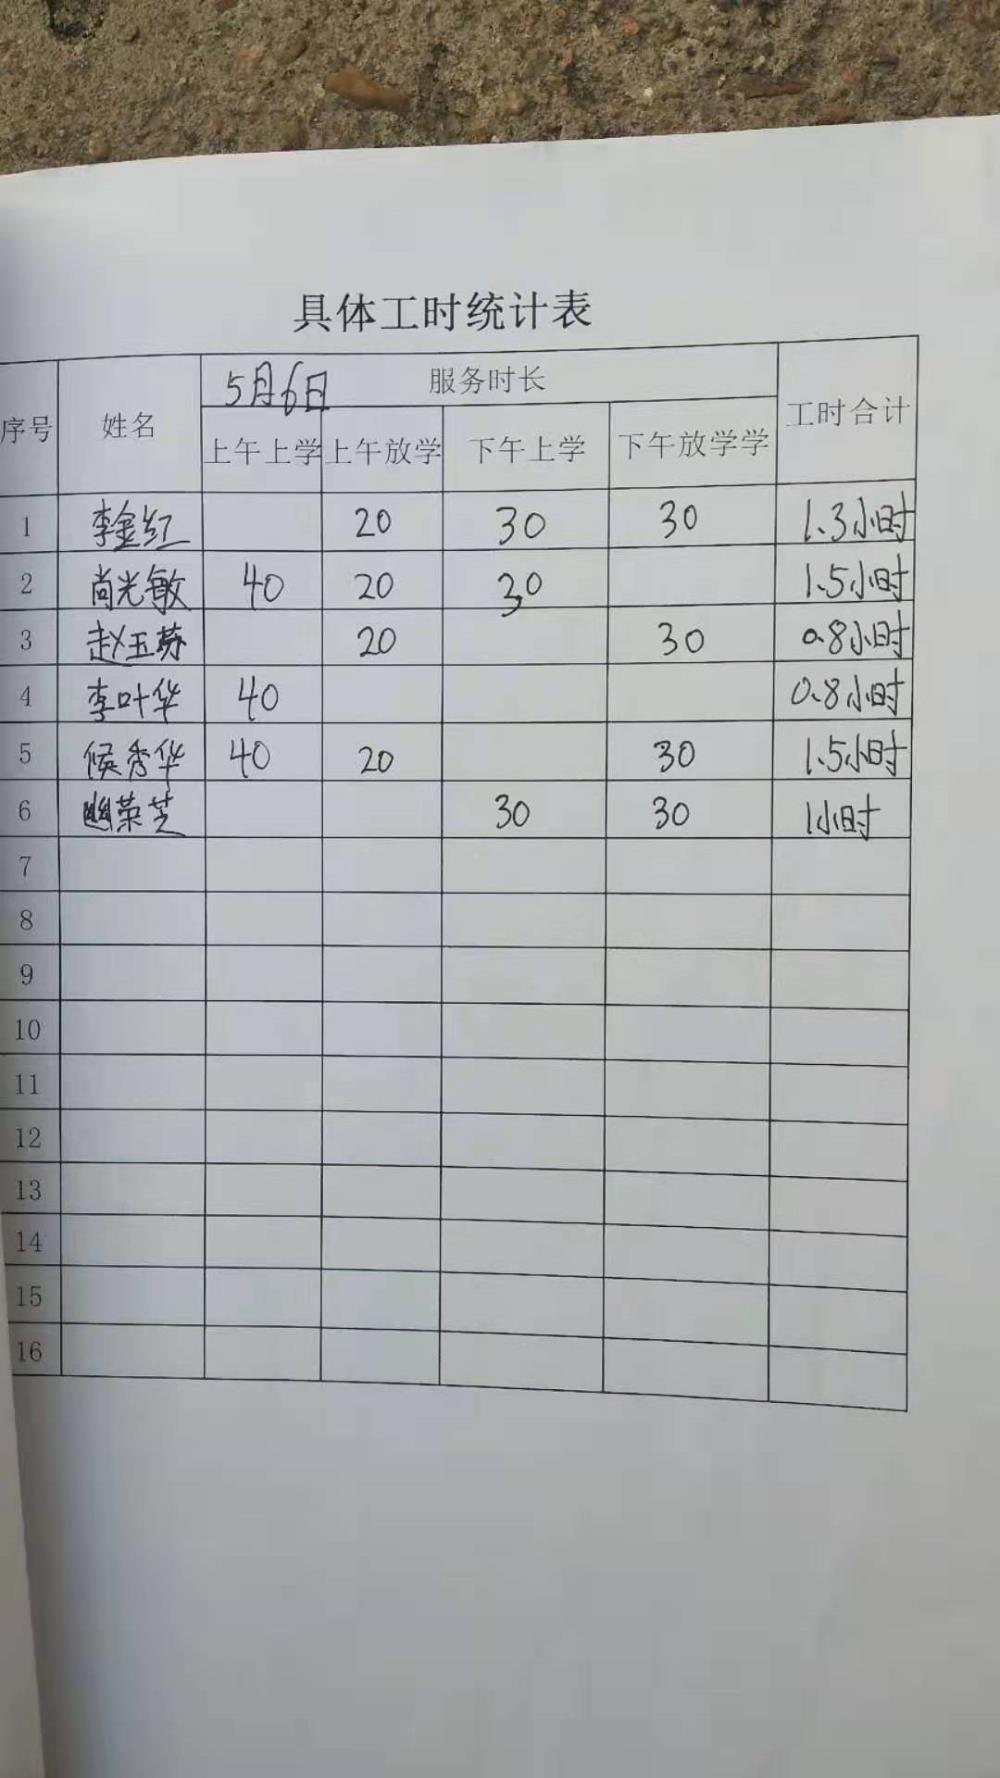 具体工时统计表
序号 姓名 5月6日 服务时长 工时合计
上午上学 上午放学 下午上学 下午放学学
1 李金红 20 30 30 1.3小时
2 尚光敏 40 20 30 1.5小时
3 赵玉芬 20 30 0.8小时
4 李叶华 40 0.8小时
5 侯秀华 40 20 30 1.5小时
6 荣芝 30 30 1小时
7
8
9
10
11
12
13
14
15
16